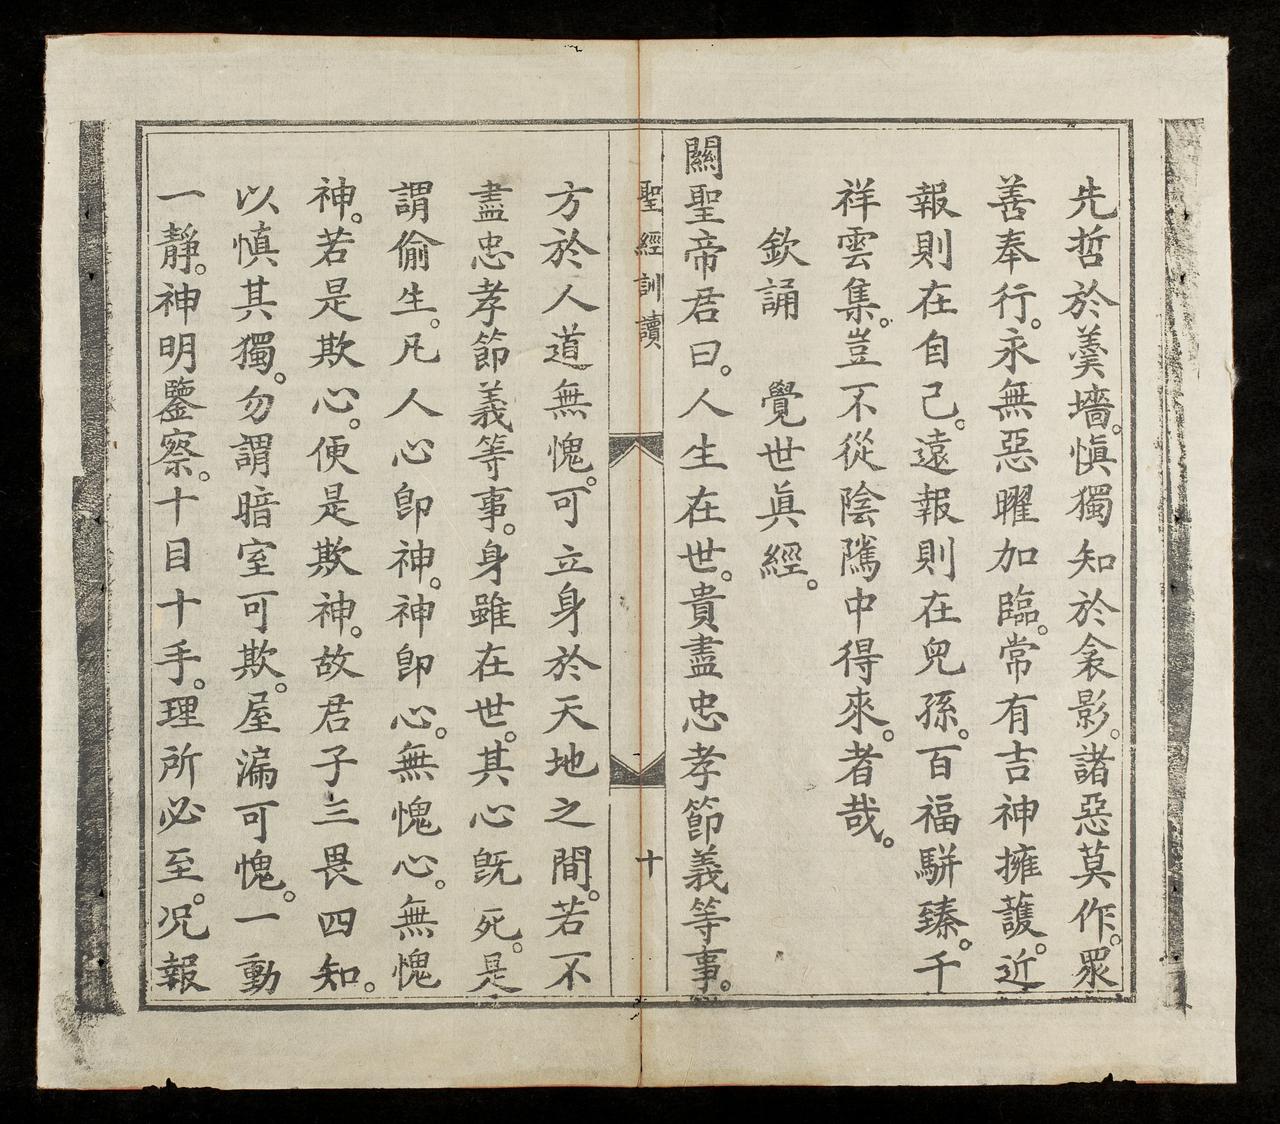 先哲於羹墻。愼獨知於衾影。諸惡莫作。眾
善奉行。永無惡曜加臨。常有吉神擁護。近
報則在自己。遠報則在兒孫。百福駢臻。千
祥雲集。豈不從陰隲中得來。者哉。
欽誦　覺世眞經。
關聖帝君曰。人生在世。貴盡忠孝節義等事。
聖經訓讀
十
方於人道無愧。可立身於天地之間。若不
盡忠孝節義等事。身雖在世。其心旣死。是
謂偷生。凡人心卽神。神卽心。無愧心。無愧
神。若是欺心。便是欺神。故君子三畏四知。
以慎其獨。勿謂暗室可欺。屋漏可愧。一動
一靜。神明鑒察。十目十手。理所必至。况報